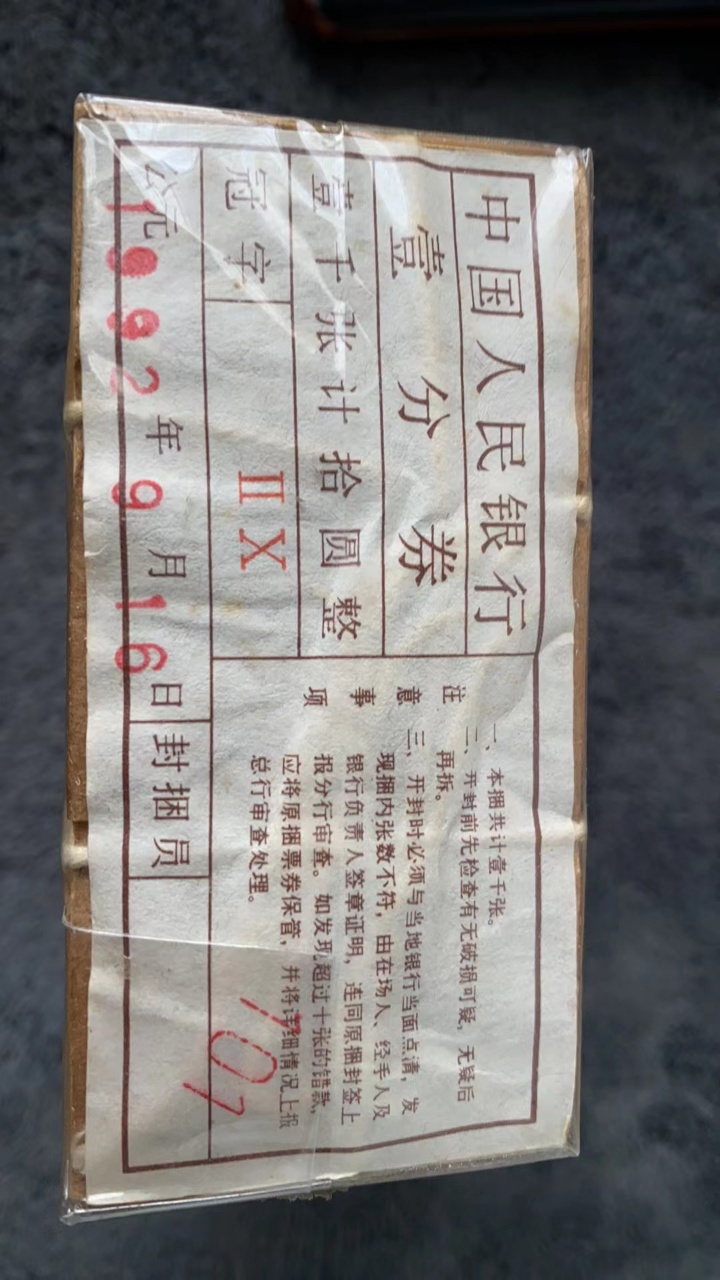 中国人民银行
壹分券
壹千张计拾圆整
冠字 ⅡⅩ
公元1992年9月16日
封捆员 101
注意事项
一、本捆共计壹千张。
二、开封前先检查有无破损可疑，无疑后
再拆。
三、开封时必须与当地银行当面点清，发
现捆内张数不符，由在场人、经手人及
银行负责人签章证明，连同原捆封签上
报分行审查。如发现超过十张的错款，
应将原捆票券保管，并将详细情况上报
总行审查处理。